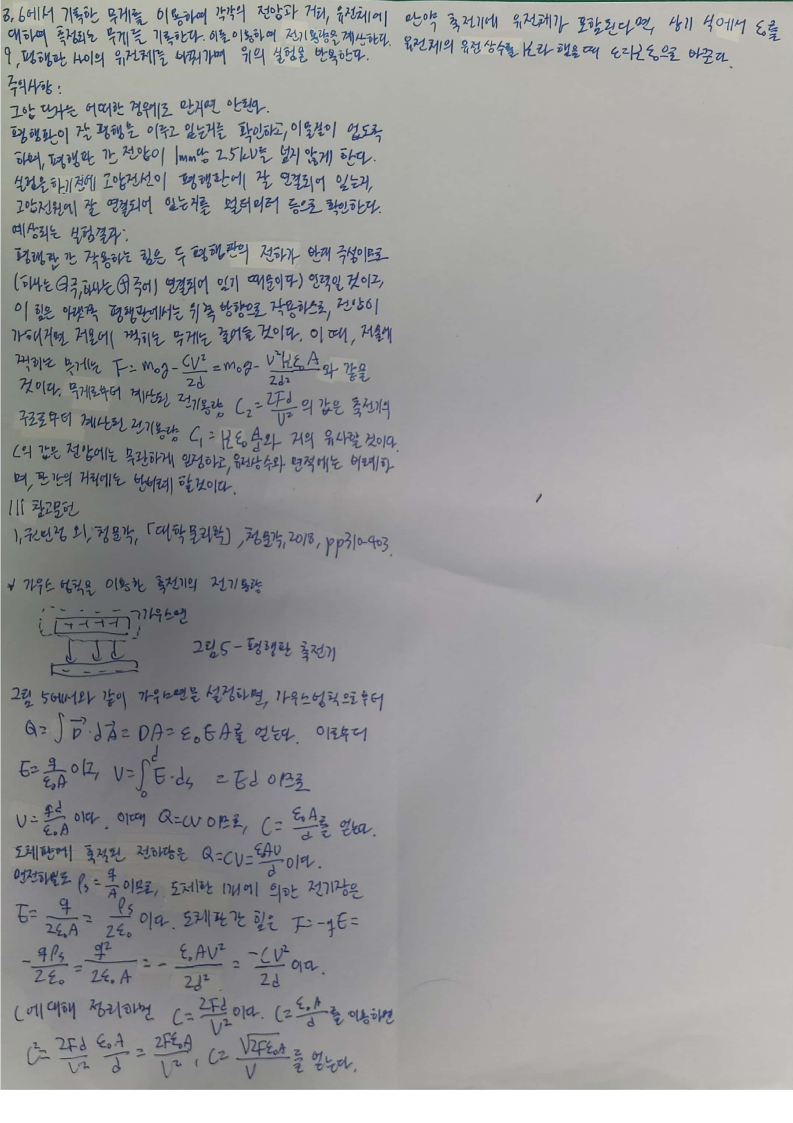 8, 6에서 기록한 무게를 이용하여 각각의 전압과 거리, 유전체에
대하여 측정되는 무게를 기록한다. 이를 이용하여 전기용량을 계산한다.
9, 평행판 사이의 유전체를 바꿔가며 위의 실험을 반복한다.
주의사항:
고압 단자는 어떠한 경우에도 만지면 안된다.
평행판이 잘 평행을 이루고 있는지를 확인하고, 이물질이 없도록
하며, 평행판 간 전압이 1mm당 2.5kV를 넘지 않게 한다.
실험을 하기 전에 고압전선이 평행판에 잘 연결되어 있는지,
고압전원에 잘 연결되어 있는지를 멀티미터 등으로 확인한다.
예상되는 실험결과:
평행판 간 작용하는 힘은 두 평행판의 전하가 반대 극성이므로
(하나는 ⊖극, 하나는 ⊕극에 연결되어 있기 때문이다) 인력일 것이고,
이 힘은 아랫쪽 평행판에서는 위쪽 방향으로 작용하므로, 전압이
가해지면 저울에 찍히는 무게는 줄어들 것이다. 이 때, 저울에
찍히는 무게는 F = m₀g - CV²/2d = m₀g - V²kε₀A/2d² 와 같을
것이다. 무게로부터 계산된 전기용량 C₂ = 2Fd/V² 의 값은 축전기의
구조로부터 계산된 전기용량 C₁ = kε₀A/d와 거의 유사할 것이다.
C의 값은 전압에는 무관하게 일정하고, 유전상수와 면적에는 비례하
며, 판간의 거리에는 반비례 할 것이다.
III 참고문헌
1, 권민정 외, 청문각, 「대학물리학」, 청문각, 2018, pp310-403.
* 가우스 법칙을 이용한 축전기의 전기용량
가우스면
++++
그림5 - 평행판 축전기
그림 5에서와 같이 가우스면을 설정하면, 가우스법칙으로부터
Q = ∫D⃗·dA⃗ = DA = ε₀EA를 얻는다. 이로부터
E = q/ε₀A 이고, V = ∫₀ᵈ E·ds = Ed 이므로
V = qd/ε₀A 이다. 이때 Q=CV 이므로, C = ε₀A/d를 얻는다.
도체판에 축적된 전하량은 Q=CV= ε₀AV/d 이다.
면전하밀도 ρs = q/A 이므로, 도체판 1개에 의한 전기장은
E = q/2ε₀A = ρs/2ε₀ 이다. 도체판간 힘은 F = -qE =
-qρs/2ε₀ = q²/2ε₀A = - ε₀AV²/2d² = -CV²/2d 이다.
C에 대해 정리하면 C = 2Fd/V² 이다. C = ε₀A/d를 이용하면
C² = 2Fd/V² ε₀A/d = 2Fε₀A/V², C = √2Fε₀A/V 를 얻는다.
만약 축전기에 유전체가 포함된다면, 상기 식에서 ε₀를
유전체의 유전상수를 k라 했을 때 ε=kε₀으로 바꾼다.